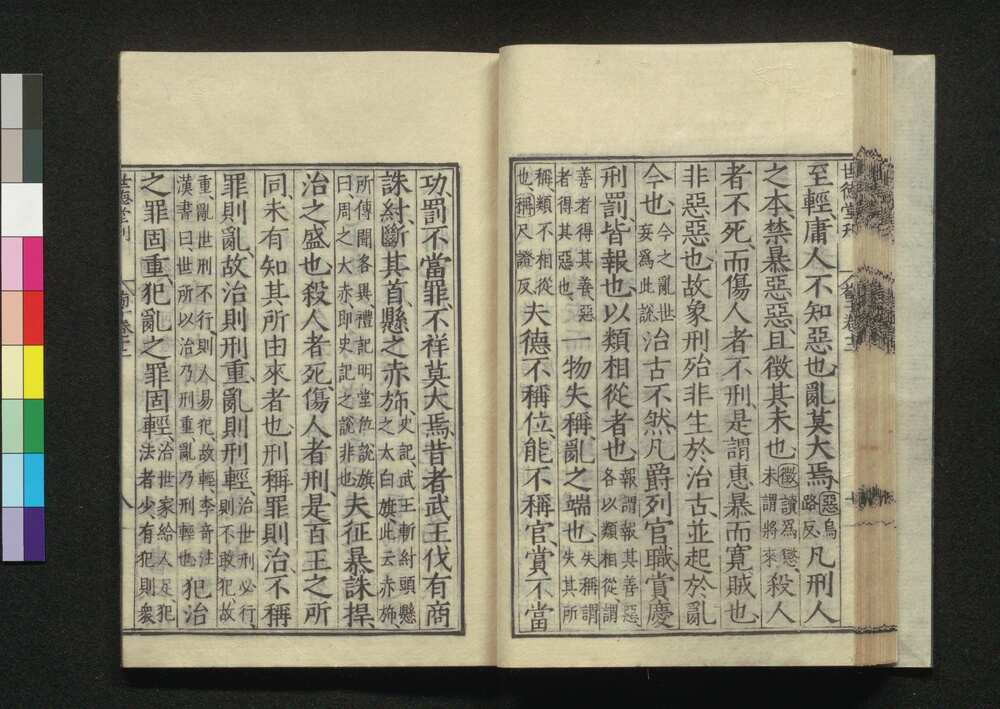 至輕庸人不知惡也亂莫大焉惡烏路反凡刑人
之本禁暴惡惡且徵其未也徵讀為懲未謂將來殺人
者不死而傷人者不刑是謂惠暴而寬賊也
非惡惡也故象刑殆非生於治古並起於亂
今也今之亂世妄爲此說治古不然凡爵列官職賞慶
刑罰皆報也以類相從者也報謂報其善惡各以類相從謂
善者得其善惡者得其惡也一物失稱亂之端也失稱謂失其所
稱類不相從也稱尺證反夫德不稱位能不稱官賞不當
功罰不當罪不祥莫大焉昔者武王伐有商
誅紂斷其首懸之赤斾史記武王斬紂頭懸之太白旗此云赤斾
所傳聞各異禮記明堂位說旗曰周之大赤即史記之說非也夫征暴誅捍
治之盛也殺人者死傷人者刑是百王之所
同未有知其所由來者也刑稱罪則治不稱
罪則亂故治則刑重亂則刑輕治世刑必行則不敢犯故
重亂世刑不行則人易犯故輕李奇注漢書曰世所以治乃刑重亂乃刑輕也犯治
之罪固重犯亂之罪固輕治世家給人足犯法者少有犯則衆